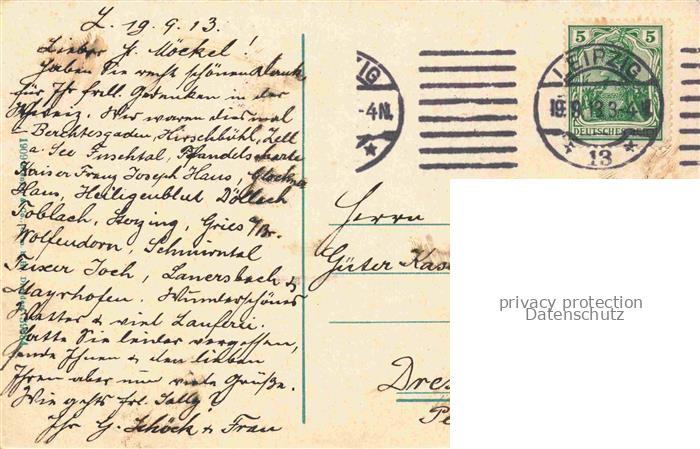 L. 19.9.13.
Lieber H. Möckel!
Haben Sie recht schönen Dank
für Ihr frdl. Gedenken in der
Schweiz. Wir waren diesmal
- Berchtesgaden, Hirschbühl, Zell
a. See Fuschtal, Pfandelscharte
Kaiser Franz Joseph Haus, Glockner
Haus, Heiligenblut Döllach
Toblach, Sterzing, Gries a/Br.
Wolfendorn, Schmirntal
Tuxer Joch, Lanersbach &
Mayrhofen. Wunderschönes
Wetter & viel Lauferei.
Hatte Sie leider vergessen,
sende Ihnen & den lieben
Ihren aber nun viele Grüße.
Wie gehts frl. Sally?
Ihr G. Schöck & Frau
LEIPZIG
19.9.13.3-4N.
* 13 *
ZIG
-4N.
*
5 5
DEUTSCHES
Herrn
Güter Kass
Dres
1909
privacy protection
Datenschutz